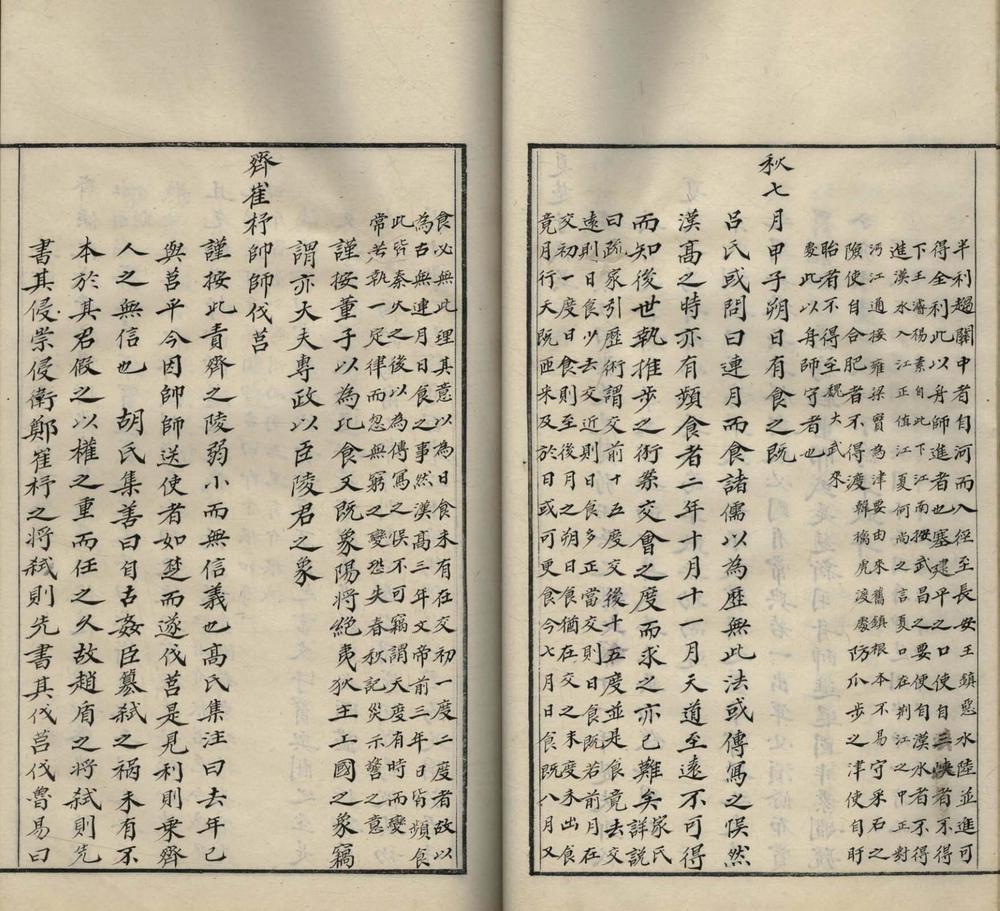 半利趨關中者自河而入徑至長安王鎮惡水陸並進可
得全利此以舟師進者也塞建平之口使自三峽者不得
下王濬楊素自此下江南扼武昌之要便自漢水者不得
進漢水入江正值江夏何尚之言夏口在荆江之中正對
沔江通接雍梁實為津要由來舊鎮根本不易守采石之
險使自合肥者不得渡韓擒虎渡處防爪步之津使自盱
眙者不得至魏大武來
處此以舟師守者也
秋七月甲子朔日有食之既
呂氏或問曰連月而食諸儒以為歷無此法或傳寫之悞然
漢高之時亦有頻食者二年十月十一月天道至遠不可得
而知後世執推步之術案交會之度而求之亦已難矣家氏詳說
曰疏家引歷術謂交前十五度交後十五度並是食竟去交
遠則日食少去交近則日食多正當交則日食既若前月在
交初一度日食則至後月之朔日猶在交之末度未出食
竟月行天既匝來及於日或可更食今七月日食既八月又
食必無此理其意以為日食未有在交初一度二度者故以
為古無連月日食之事然漢高三年文帝前三年日皆頻食
此皆秦火之後以為傳寫之悞不可竊謂天度有時而變
常若執一定律而忽無窮之變恐失春秋記災示警之意
謹按董子以為比食又既象陽將絕夷狄主上國之象竊
謂亦大夫專政以臣陵君之象
齊崔杼帥師伐莒
謹按此責齊之陵弱小而無信義也高氏集注曰去年已
與莒平今因帥師送使者如楚而遂伐莒是見利則乘齊
人之無信也 胡氏集善曰自古姦臣篡弑之禍未有不
本於其君假之以權之重而任之久故趙盾之將弑則先
書其侵崇侵衛鄭崔杼之將弑則先書其伐莒伐魯易曰